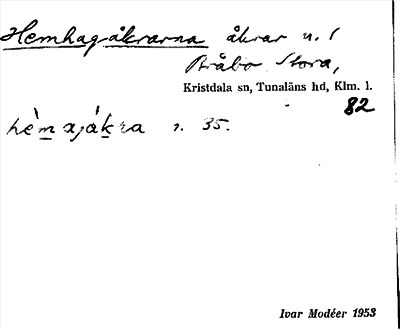 Hemhagåkrarna åkrar n. 1
Bråbo Stora,
Kristdala sn, Tunaläns hd, Klm. l.
82
hè̀m xjákra r. 35.
Ivar Modéer 1953